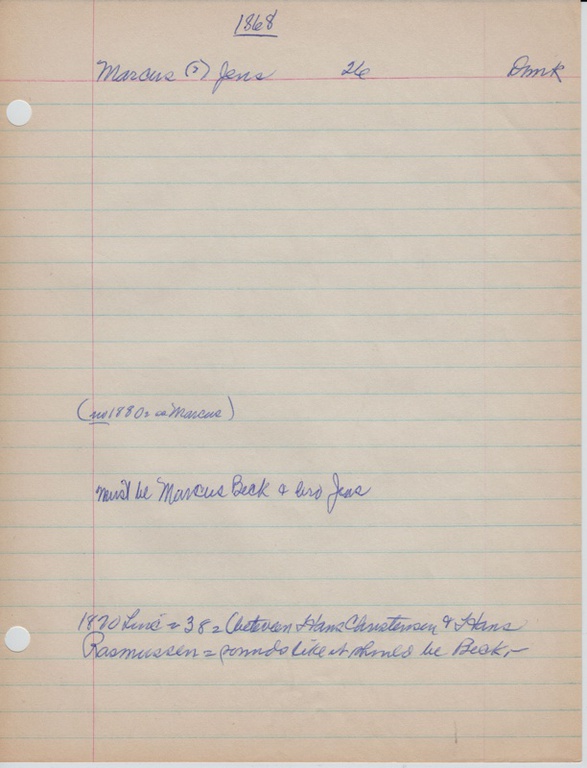 1868
Marcus (?) Jens 26 Dmk
(no 1880 = as Marcus)
must be Marcus Beck & bro Jens
1870 Line = 38 = (between Hans Christensen & Hans
Rasmussen = sounds like it should be Beck,-